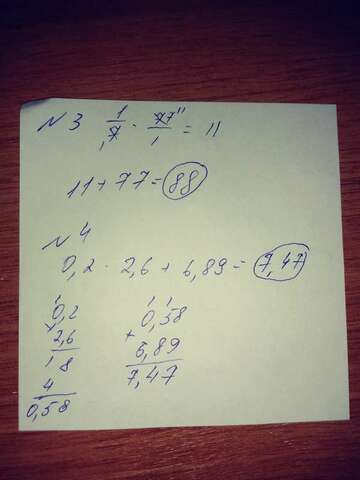 № 3 1/7 · 77/1 = 11
11 + 77 = 88
№ 4
0,2 · 2,6 + 6,89 = 7,47
0,2
× 2,6
1 8
4
0,58
0,58
+ 6,89
7,47